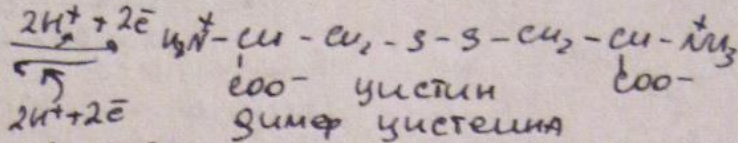 2H⁺ + 2ē
H₃N⁺ - CH - CH₂ - S - S - CH₂ - CH - N⁺H₃
COO⁻ цистин COO⁻
2H⁺+2ē димер цистеина